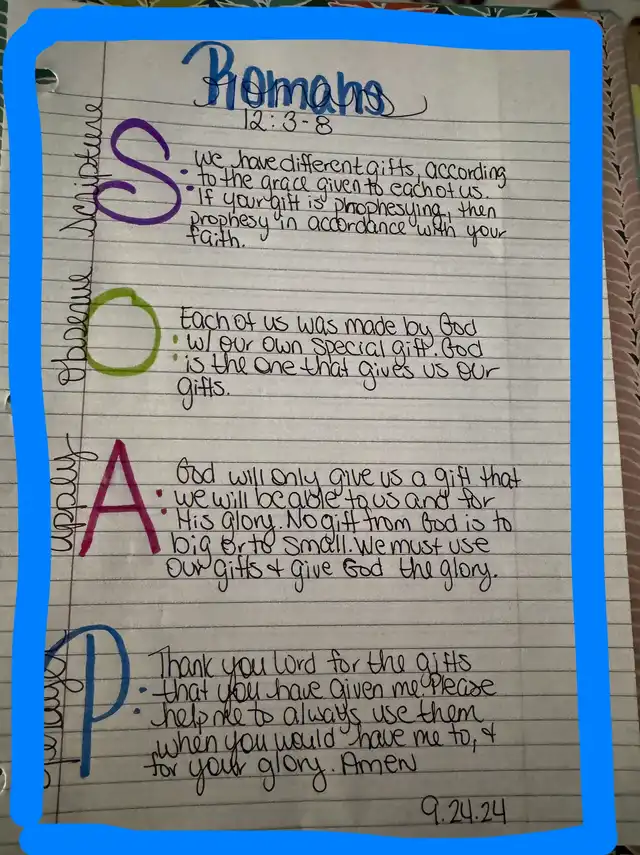 Romans
12:3-8
Scripture
S: We have different gifts, according
to the grace given to each of us.
If your gift is phophesying, then
prophesy in accordance with your
faith.
Observe
O: Each of us was made by God
w/ our own special gift. God
is the one that gives us our
gifts.
Apply
A: God will only give us a gift that
we will be able to us and for
His glory. No gift from God is to
big or to small. We must use
our gifts & give God the glory.
Prayer
P: Thank you Lord for the gifts
that you have given me. Please
help me to always use them
when you would have me to, &
for your glory. Amen
9.24.24